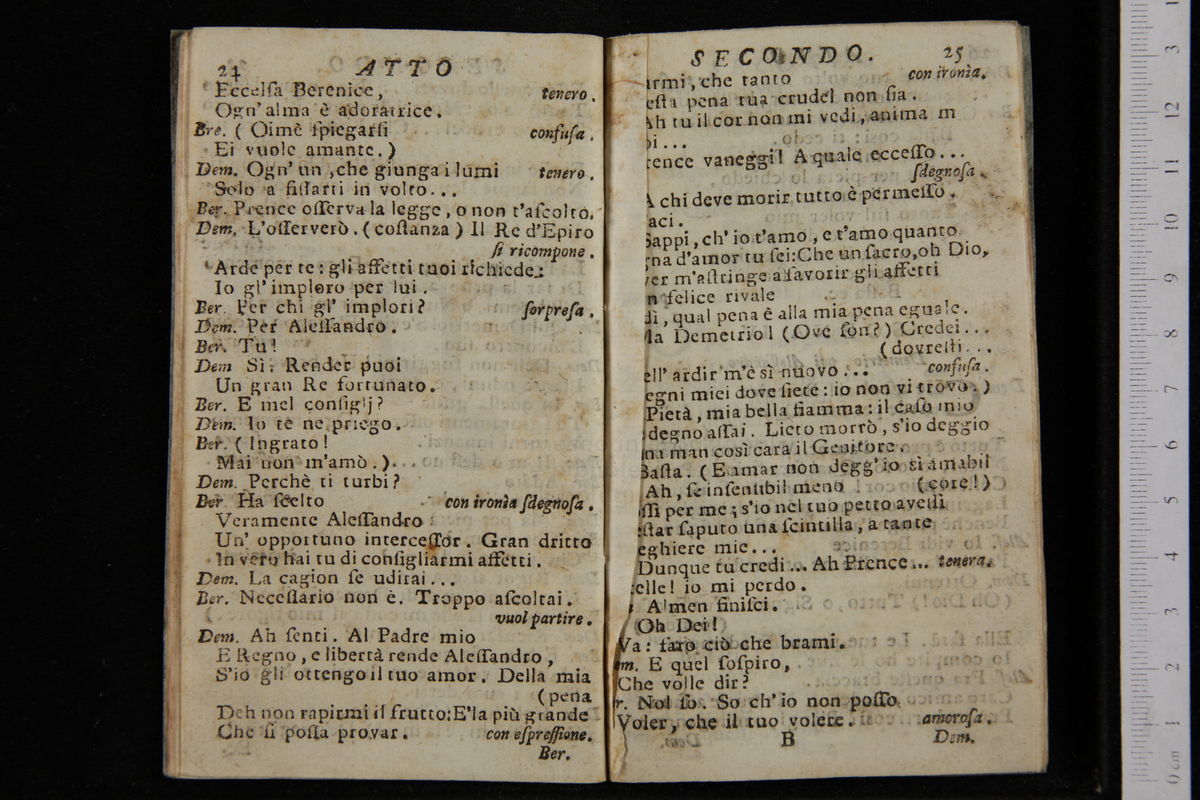 24 ATTO
Eccelſa Berenice, tenero.
Ogn' alma è adoratrice.
Bre. ( Oimè ſpiegarſi confuſa.
Ei vuole amante. )
Dem. Ogn' un , che giunga i lumi tenero.
Solo a fiſſarti in volto...
Ber. Prence oſſerva la legge, o non t'aſcolto.
Dem. L'oſſerverò. ( coſtanza ) Il Re d'Epiro
ſi ricompone.
Arde per te : gli affetti tuoi richiede:
Io gl' imploro per lui.
Ber. Per chi gl' implori? ſorpreſa.
Dem. Per Aleſſandro.
Ber. Tu!
Dem Sì: Render puoi
Un gran Re fortunato.
Ber. E mel conſiglj?
Dem. Io te ne priego.
Ber. ( Ingrato!
Mai non m'amò. )...
Dem. Perchè ti turbi?
Ber Ha ſcelto con ironìa ſdegnoſa.
Veramente Aleſſandro
Un' opportuno interceſſor. Gran dritto
In vero hai tu di conſigliarmi affetti.
Dem. La cagion ſe udirai...
Ber. Neceſſario non è. Troppo aſcoltai.
vuol partire.
Dem. Ah ſenti. Al Padre mio
E Regno, e libertà rende Aleſſandro,
S'io gli ottengo il tuo amor. Della mia
(pena
Deh non rapirmi il frutto: E'la più grande
Che ſi poſſa provar. con eſpreſſione.
Ber.
SECONDO. 25
armi, che tanto con ironìa.
eſta pena tua crudel non ſia.
Ah tu il cor non mi vedi, anima m
oi...
rence vaneggi! A quale ecceſſo...
ſdegnoſa.
A chi deve morir tutto è permeſſo.
aci.
Sappi, ch' io t'amo, e t'amo quanto
gna d'amor tu ſei: Che un ſacro, oh Dio,
ver m'aſtringe a favorir gli affetti
n felice rivale
dì, qual pena è alla mia pena eguale.
Ma Demetrio! (Ove ſon?) Credei...
(dovreſti...
ell' ardir m'è sì nuovo... confuſa.
egni miei dove ſiete: io non vi trovo. )
Pietà, mia bella fiamma: il caſo mio
degno aſſai. Lieto morrò, s'io deggio
na man così cara il Genitore.
Baſta. ( E amar non degg' io sì amabil
Ah, ſe inſenſibil meno (core!)
oſſi per me; s'io nel tuo petto aveſſi
eſtar ſaputo una ſcintilla, a tante
eghiere mie...
Dunque tu credi... Ah Prence... tenera.
telle! io mi perdo.
Almen finiſci.
Oh Dei!
Va: farò ciò che brami.
em. E quel ſoſpiro,
Che volle dir?
r. Nol ſo. So ch' io non poſſo
Voler, che il tuo volere. amoroſa.
B Dem.